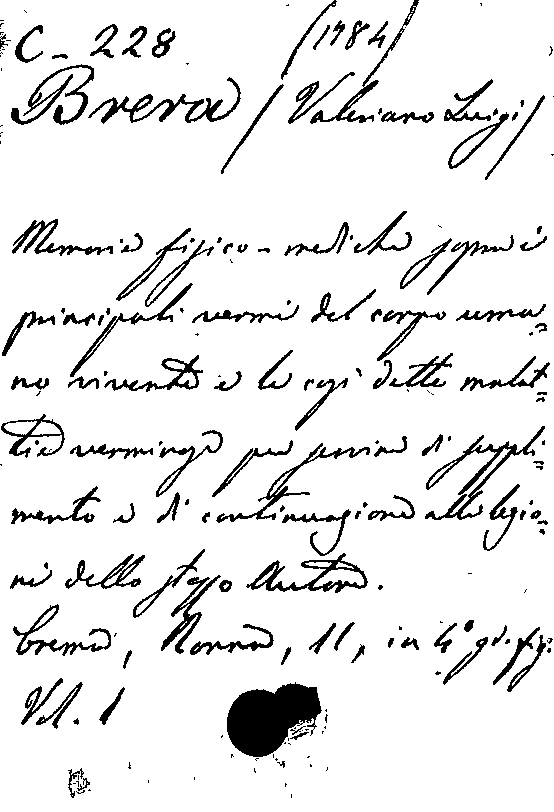 C - 228 (1784)
Brera / Valeriano Luigi /
Memorie fisico-mediche sopra i
principali vermi del corpo uma=
no vivente e le così dette malat=
tie verminose per servire di suppli=
mento e di continuazione alle lezio=
ni dello stesso Autore.
Crema, Ronna, 11, in 4° gr. fig.
Vol. 1